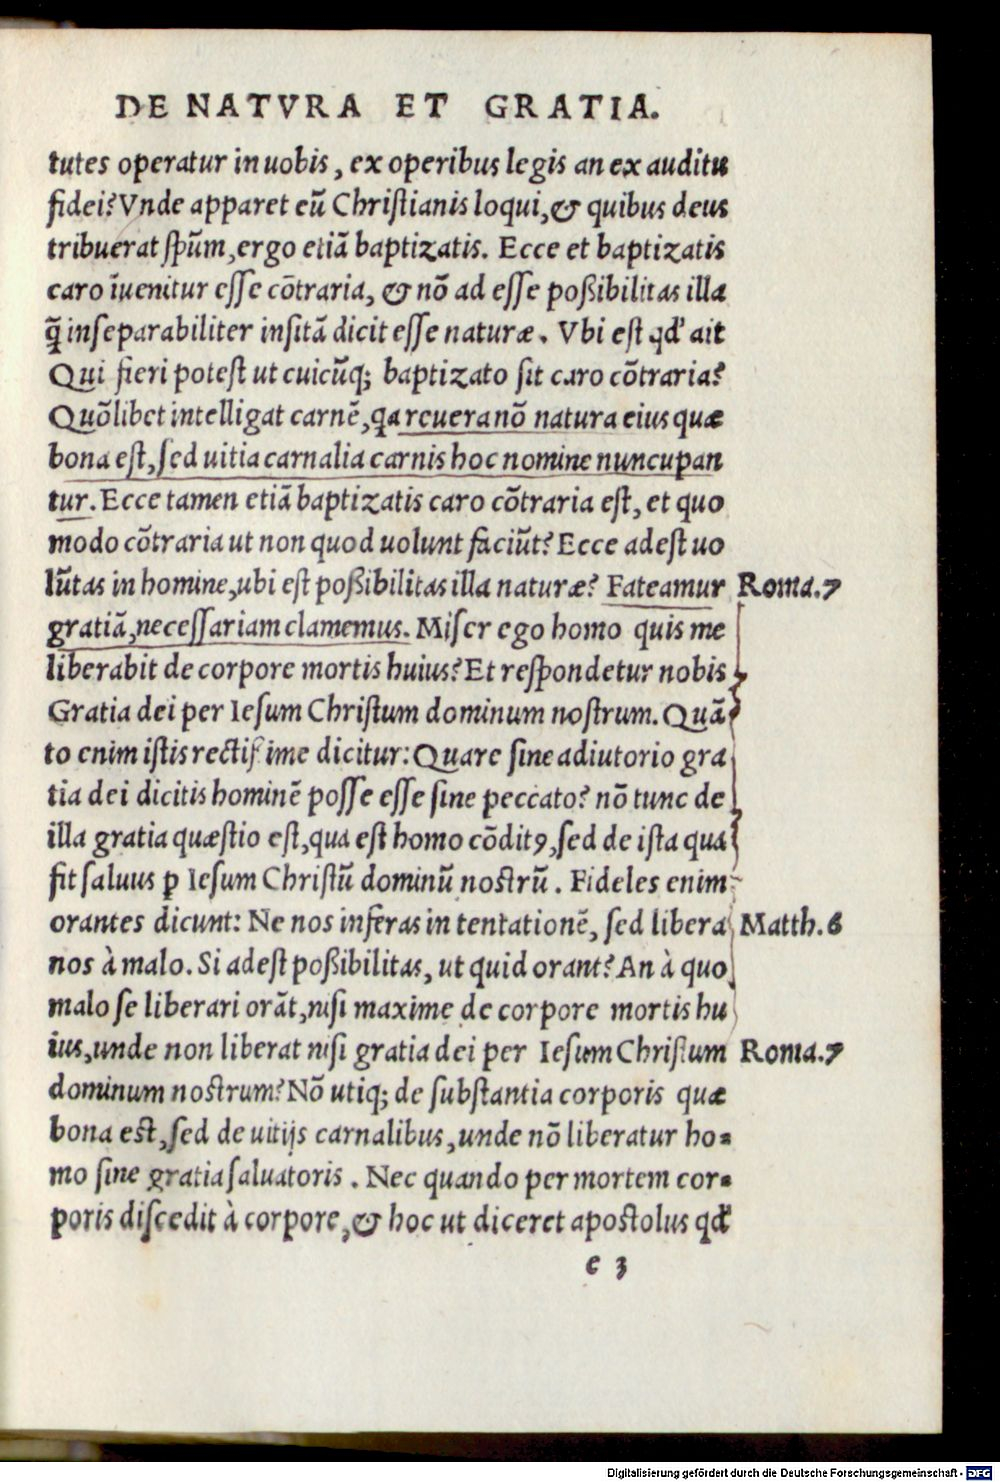 DE NATVRA ET GRATIA.
tutes operatur in uobis, ex operibus legis an ex auditu
fidei? Vnde apparet eũ Christianis loqui, & quibus deus
tribuerat sp̃um, ergo etiã baptizatis. Ecce et baptizatis
caro ĩuenitur esse cõtraria, & nõ ad esse poßibilitas illa
q̃ inseparabiliter insitã dicit esse naturæ. Vbi est qd' ait
Qui fieri potest ut cuicũq; baptizato sit caro cõtraria?
Quõlibet intelligat carnẽ, qa reuera nõ natura eius quæ
bona est, sed uitia carnalia carnis hoc nomine nuncupan
tur. Ecce tamen etiã baptizatis caro cõtraria est, et quo
modo cõtraria ut non quod uolunt faciũt? Ecce adest uo
lũtas in homine, ubi est poßibilitas illa naturæ? Fateamur Roma.7
gratiã, necessariam clamemus. Miser ego homo quis me
liberabit de corpore mortis huius? Et respondetur nobis
Gratia dei per Iesum Christum dominum nostrum. Quã
to enim istis rectissime dicitur: Quare sine adiutorio gra
tia dei dicitis hominẽ posse esse sine peccato? nõ tunc de
illa gratia quæstio est, qua est homo cõditꝰ, sed de ista qua
fit saluus ꝑ Iesum Christũ dominũ nostrũ. Fideles enim
orantes dicunt: Ne nos inferas in tentationẽ, sed libera Matth.6
nos à malo. Si adest poßibilitas, ut quid orant? An à quo
malo se liberari orãt, nisi maxime de corpore mortis hu
ius, unde non liberat nisi gratia dei per Iesum Christum Roma.7
dominum nostrum? Nõ utiq; de substantia corporis quæ
bona est, sed de uitijs carnalibus, unde nõ liberatur ho-
mo sine gratia saluatoris. Nec quando per mortem cor-
poris discedit à corpore, & hoc ut diceret apostolus qd'
e 3
Digitalisierung gefördert durch die Deutsche Forschungsgemeinschaft - DFG